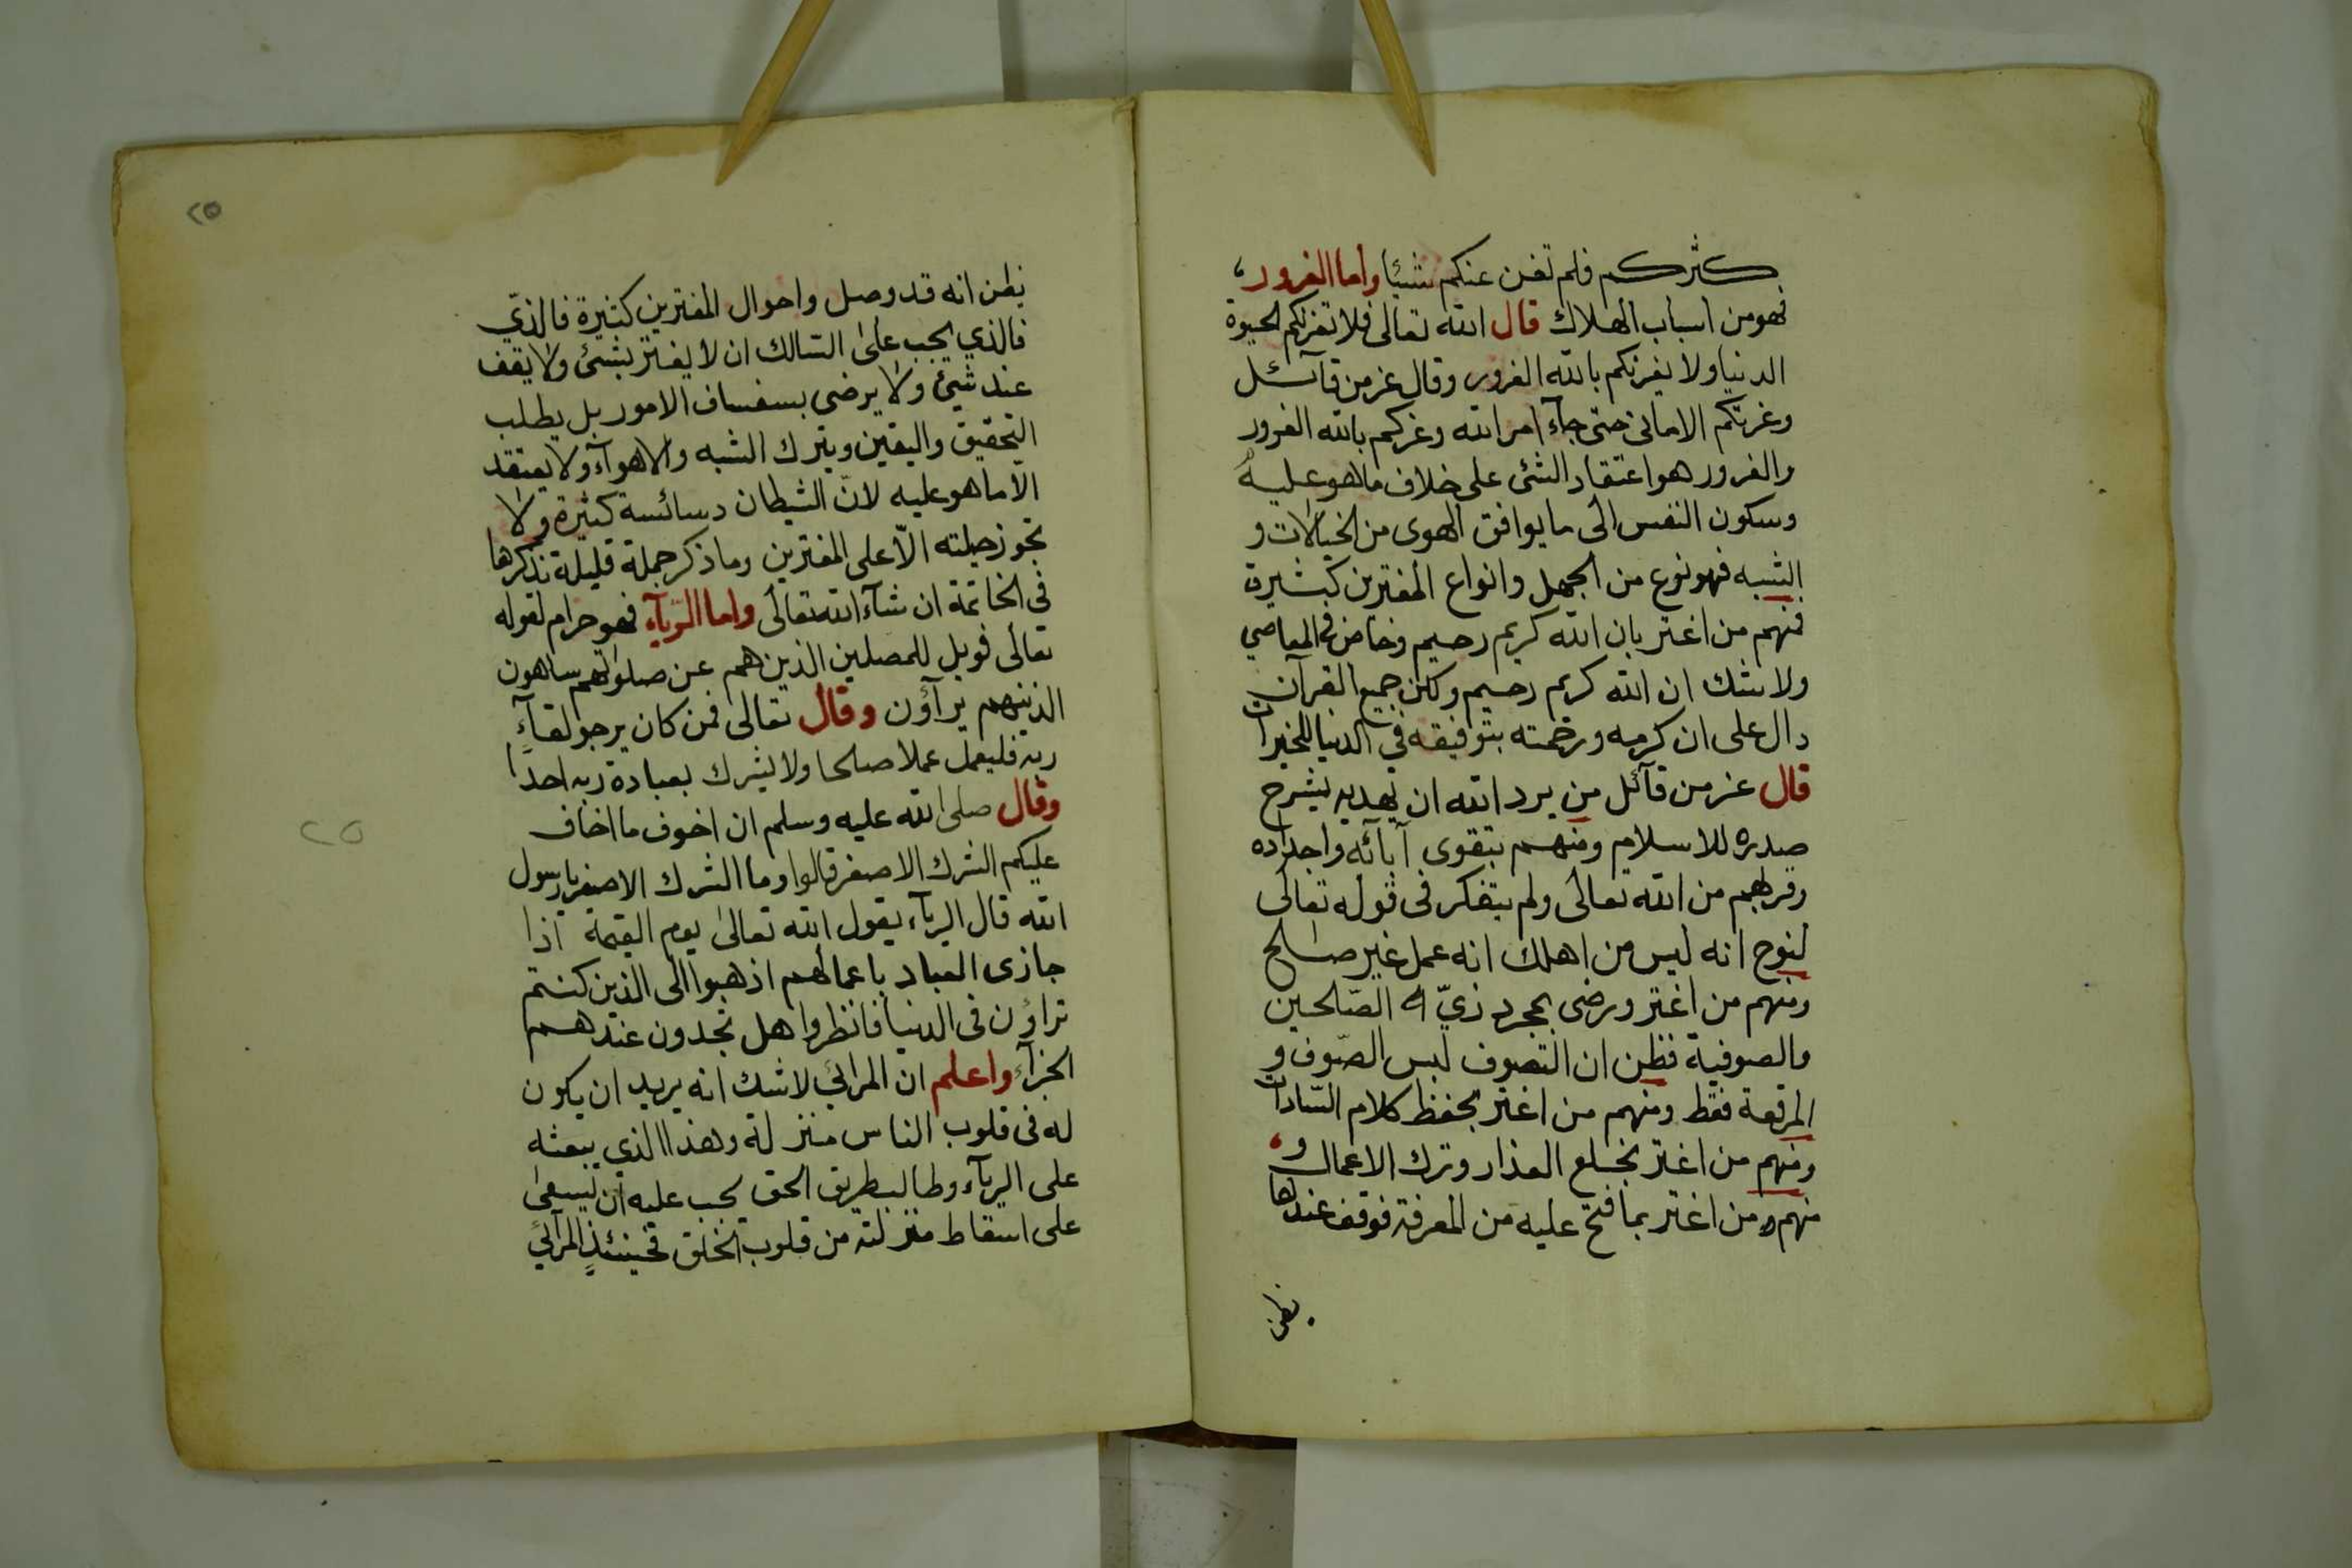 كثركم فلم تغن عنكم شيئا واما الغرور،
فهو من اسباب الهلاك قال الله تعالى فلا تغرنكم الحيوة
الدنيا ولا يغرنكم بالله الغرور وقال عز من قآئل
وغرتكم الامانى حتى جآء امر الله وغركم بالله الغرور
والغرور هو اعتقاد الشئ على خلاف ما هو عليه
وسكون النفس الى ما يوافق الهوى من الخيالات و
الشبه فهو نوع من الجهل وانواع المغترين كثيرة
فمنهم من اغتر بان الله كريم رحيم وخاض فى المعاصي
ولا شك ان الله كريم رحيم ولكن جميع القرآن
دال على ان كرمه ورحمته بتوفيقه في الدنيا للخيرات
قال عز من قآئل من يرد الله ان يهديه يشرح
صدره للاسلام ومنهم بتقوى آبائه واجداده
وقربهم من الله تعالى ولم يتفكر فى قوله تعالى
لنوح انه ليس من اهلك انه عمل غير صالح
ومنهم من اغتر ورضى بمجرد زيّ الصّالحين
والصوفية فظن ان التصوف لبس الصّوف و
المرقعة فقط ومنهم من اغتر بحفظ كلام السّادات
ومنهم من اغتر بخلع العذار وترك الاعمال و
منهم من اغتر بما فتح عليه من المعرفة فوقف عندها
يظن
٢٥
يظن انه قد وصل واحوال المغترين كثيرة فالذي
فالذي يجب على السّالك ان لا يغتر بشئ ولا يقف
عند شيئ ولا يرضى بسفساف الامور بل يطلب
التحقيق واليقين ويترك الشبه والاهوآء ولا يعتقد
الّا ما هو عليه لانّ الشيطان دسائسة كثيرة ولا
تجوز حيلته الّا على المغترين وما ذكر جملة قليلة نذكرها
في الخاتمة ان شآء الله تعالى واما الريآء فهو حرام لقوله
تعالى فويل للمصلين الذين هم عن صلوتهم ساهون
الذينهم يرآؤن وقال تعالى فمن كان يرجو لقآء
ربه فليعمل عملا صلحا ولا يشرك بعبادة ربه احدًا
وقال صلى الله عليه وسلم ان اخوف ما اخاف
عليكم الشرك الاصغر قالوا وما الشرك الاصغر يا رسول
الله قال الريآء يقول الله تعالى يوم القيمة اذا
جازى العباد باعمالهم اذهبوا الى الذين كنتم
تراؤن فى الدنيا فانظروا هل تجدون عندهم
الجزآء واعلم ان المرائي لا شك انه يريد ان يكون
له فى قلوب الناس منزلة وهذا الذي يبعثه
على الريآء وطالب طريق الحق يجب عليه ان يسعى
على اسقاط منزلته من قلوب الخلق فحينئذٍ المرآئي
٢٥